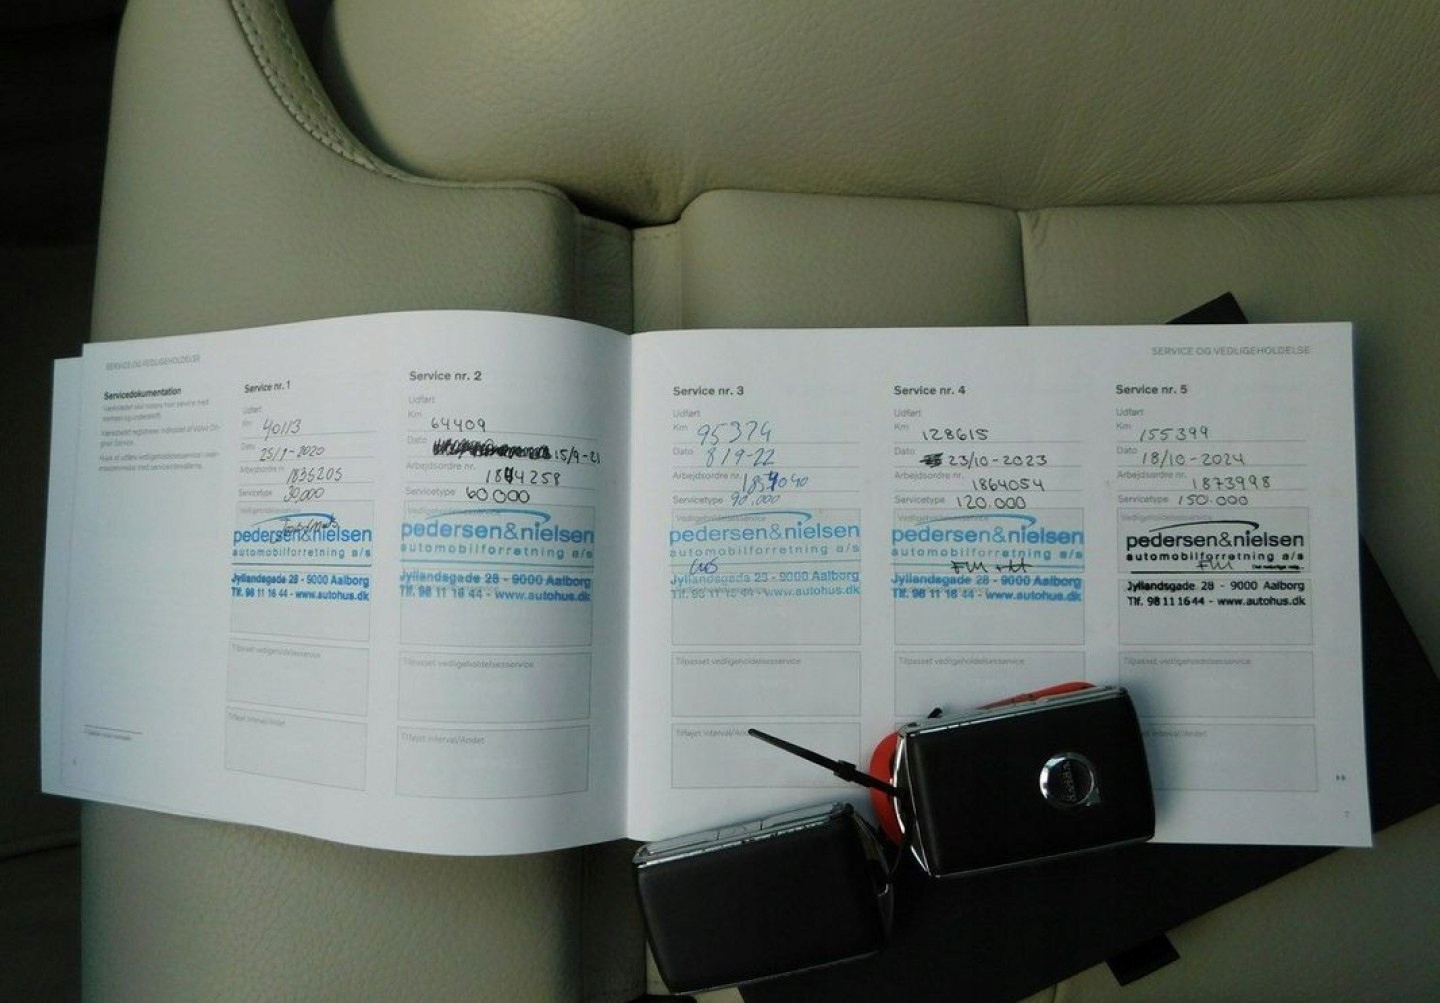 SERVICE OG VEDLIGEHOLDELSE
Servicedokumentation
Service nr. 1
Udført
Km 40113
Dato 25/9-2020
Arbejdsordre nr. 1835205
Servicetype 30.000
Vedligeholdelsesservice
pedersen&nielsen
automobilforretning a/s
Jyllandsgade 28 - 9000 Aalborg
Tlf. 98 11 16 44 - www.autohus.dk
Tilpasset vedligeholdelsesservice
Tilføjet interval/Andet
Service nr. 2
Udført
Km 64409
Dato 15/9-21
Arbejdsordre nr. 1844258
Servicetype 60.000
Vedligeholdelsesservice
pedersen&nielsen
automobilforretning a/s
Jyllandsgade 28 - 9000 Aalborg
Tlf. 98 11 16 44 - www.autohus.dk
Tilpasset vedligeholdelsesservice
Tilføjet interval/Andet
SERVICE OG VEDLIGEHOLDELSE
Service nr. 3
Udført
Km 95374
Dato 8/9-22
Arbejdsordre nr.
Servicetype 90.000
Vedligeholdelsesservice
pedersen&nielsen
automobilforretning a/s
Jyllandsgade 28 - 9000 Aalborg
Tlf. 98 11 16 44 - www.autohus.dk
Tilpasset vedligeholdelsesservice
Tilføjet interval/An
Service nr. 4
Udført
Km 128615
Dato 23/10-2023
Arbejdsordre nr. 1864054
Servicetype 120.000
Vedligeholdelsesservice
pedersen&nielsen
automobilforretning a/s
Jyllandsgade 28 - 9000 Aalborg
Tlf. 98 11 16 44 - www.autohus.dk
Tilpasset vedligeholdelsesservice
Service nr. 5
Udført
Km 155399
Dato 18/10-2024
Arbejdsordre nr. 1873998
Servicetype 150.000
Vedligeholdelsesservice
pedersen&nielsen
automobilforretning a/s
Jyllandsgade 28 - 9000 Aalborg
Tlf. 98 11 16 44 - www.autohus.dk
Tilpasset vedligeholdelsesservice
val/Andet
7
VOLVO